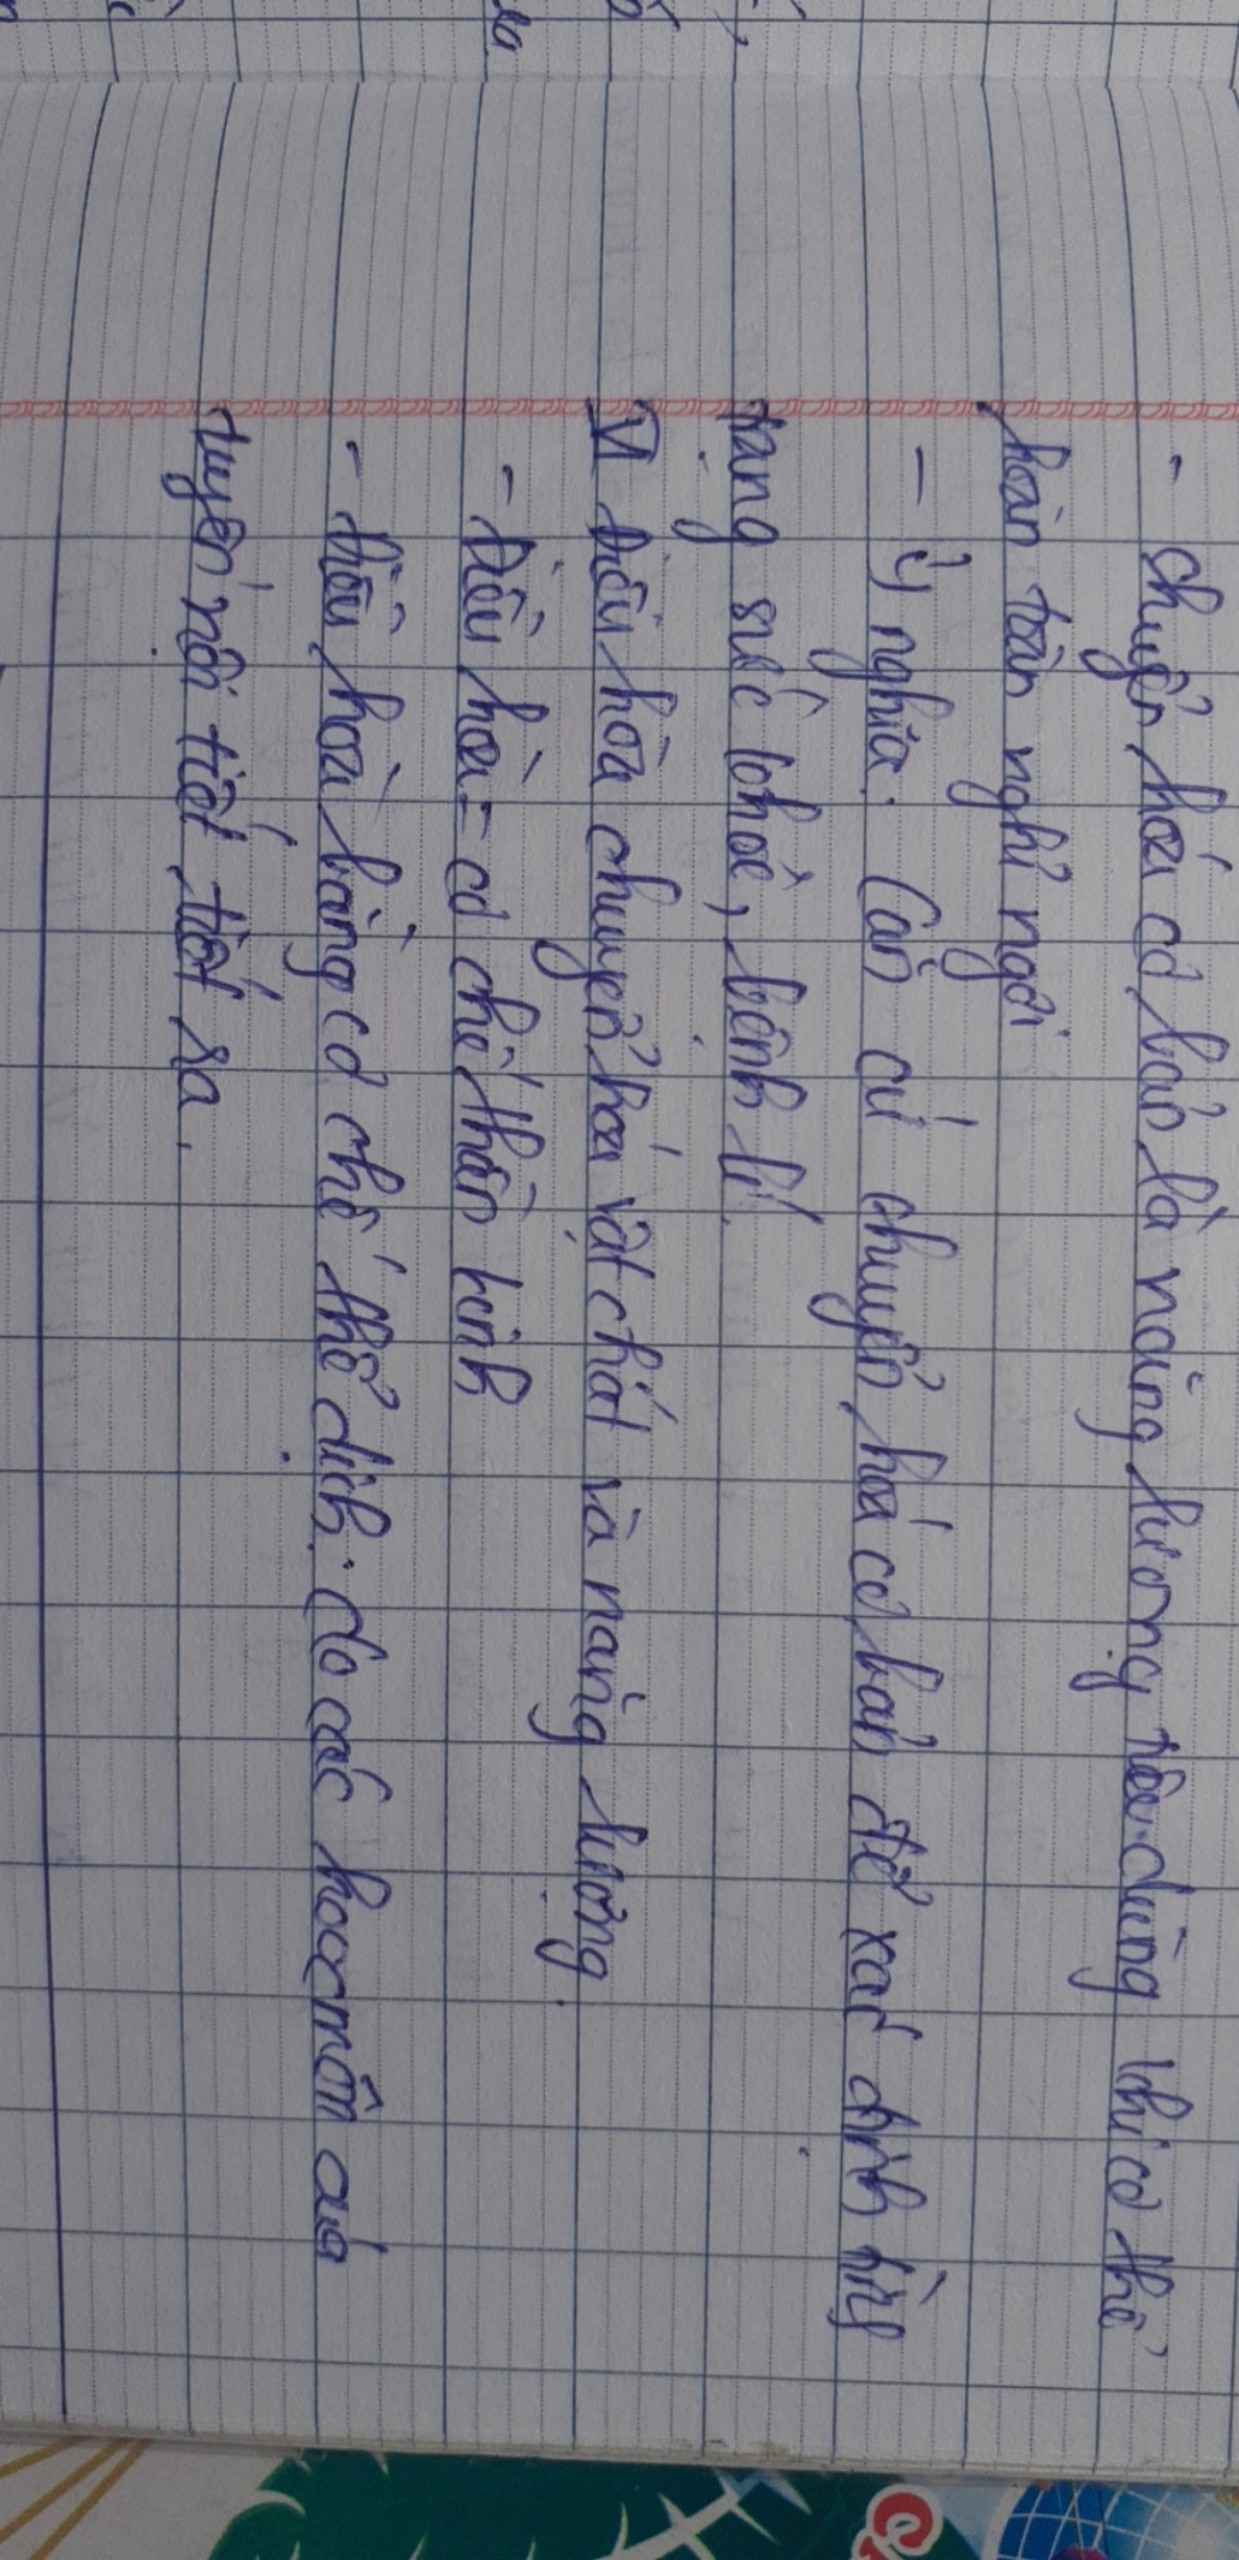 - chuyển hoá cơ bản là năng lượng tiêu dùng khi cơ thể
hoàn toàn nghỉ ngơi
- ý nghĩa: Căn cứ chuyển hoá cơ bản để xác định tình
trạng sức khoẻ, bệnh lí.
VI Điều hòa chuyển hoá vật chất và năng lượng.
- Điều hoà = cơ chế thần kinh
- Điều hoà bằng cơ chế thể dịch: do các hoocmôn của
tuyến nội tiết tiết ra.